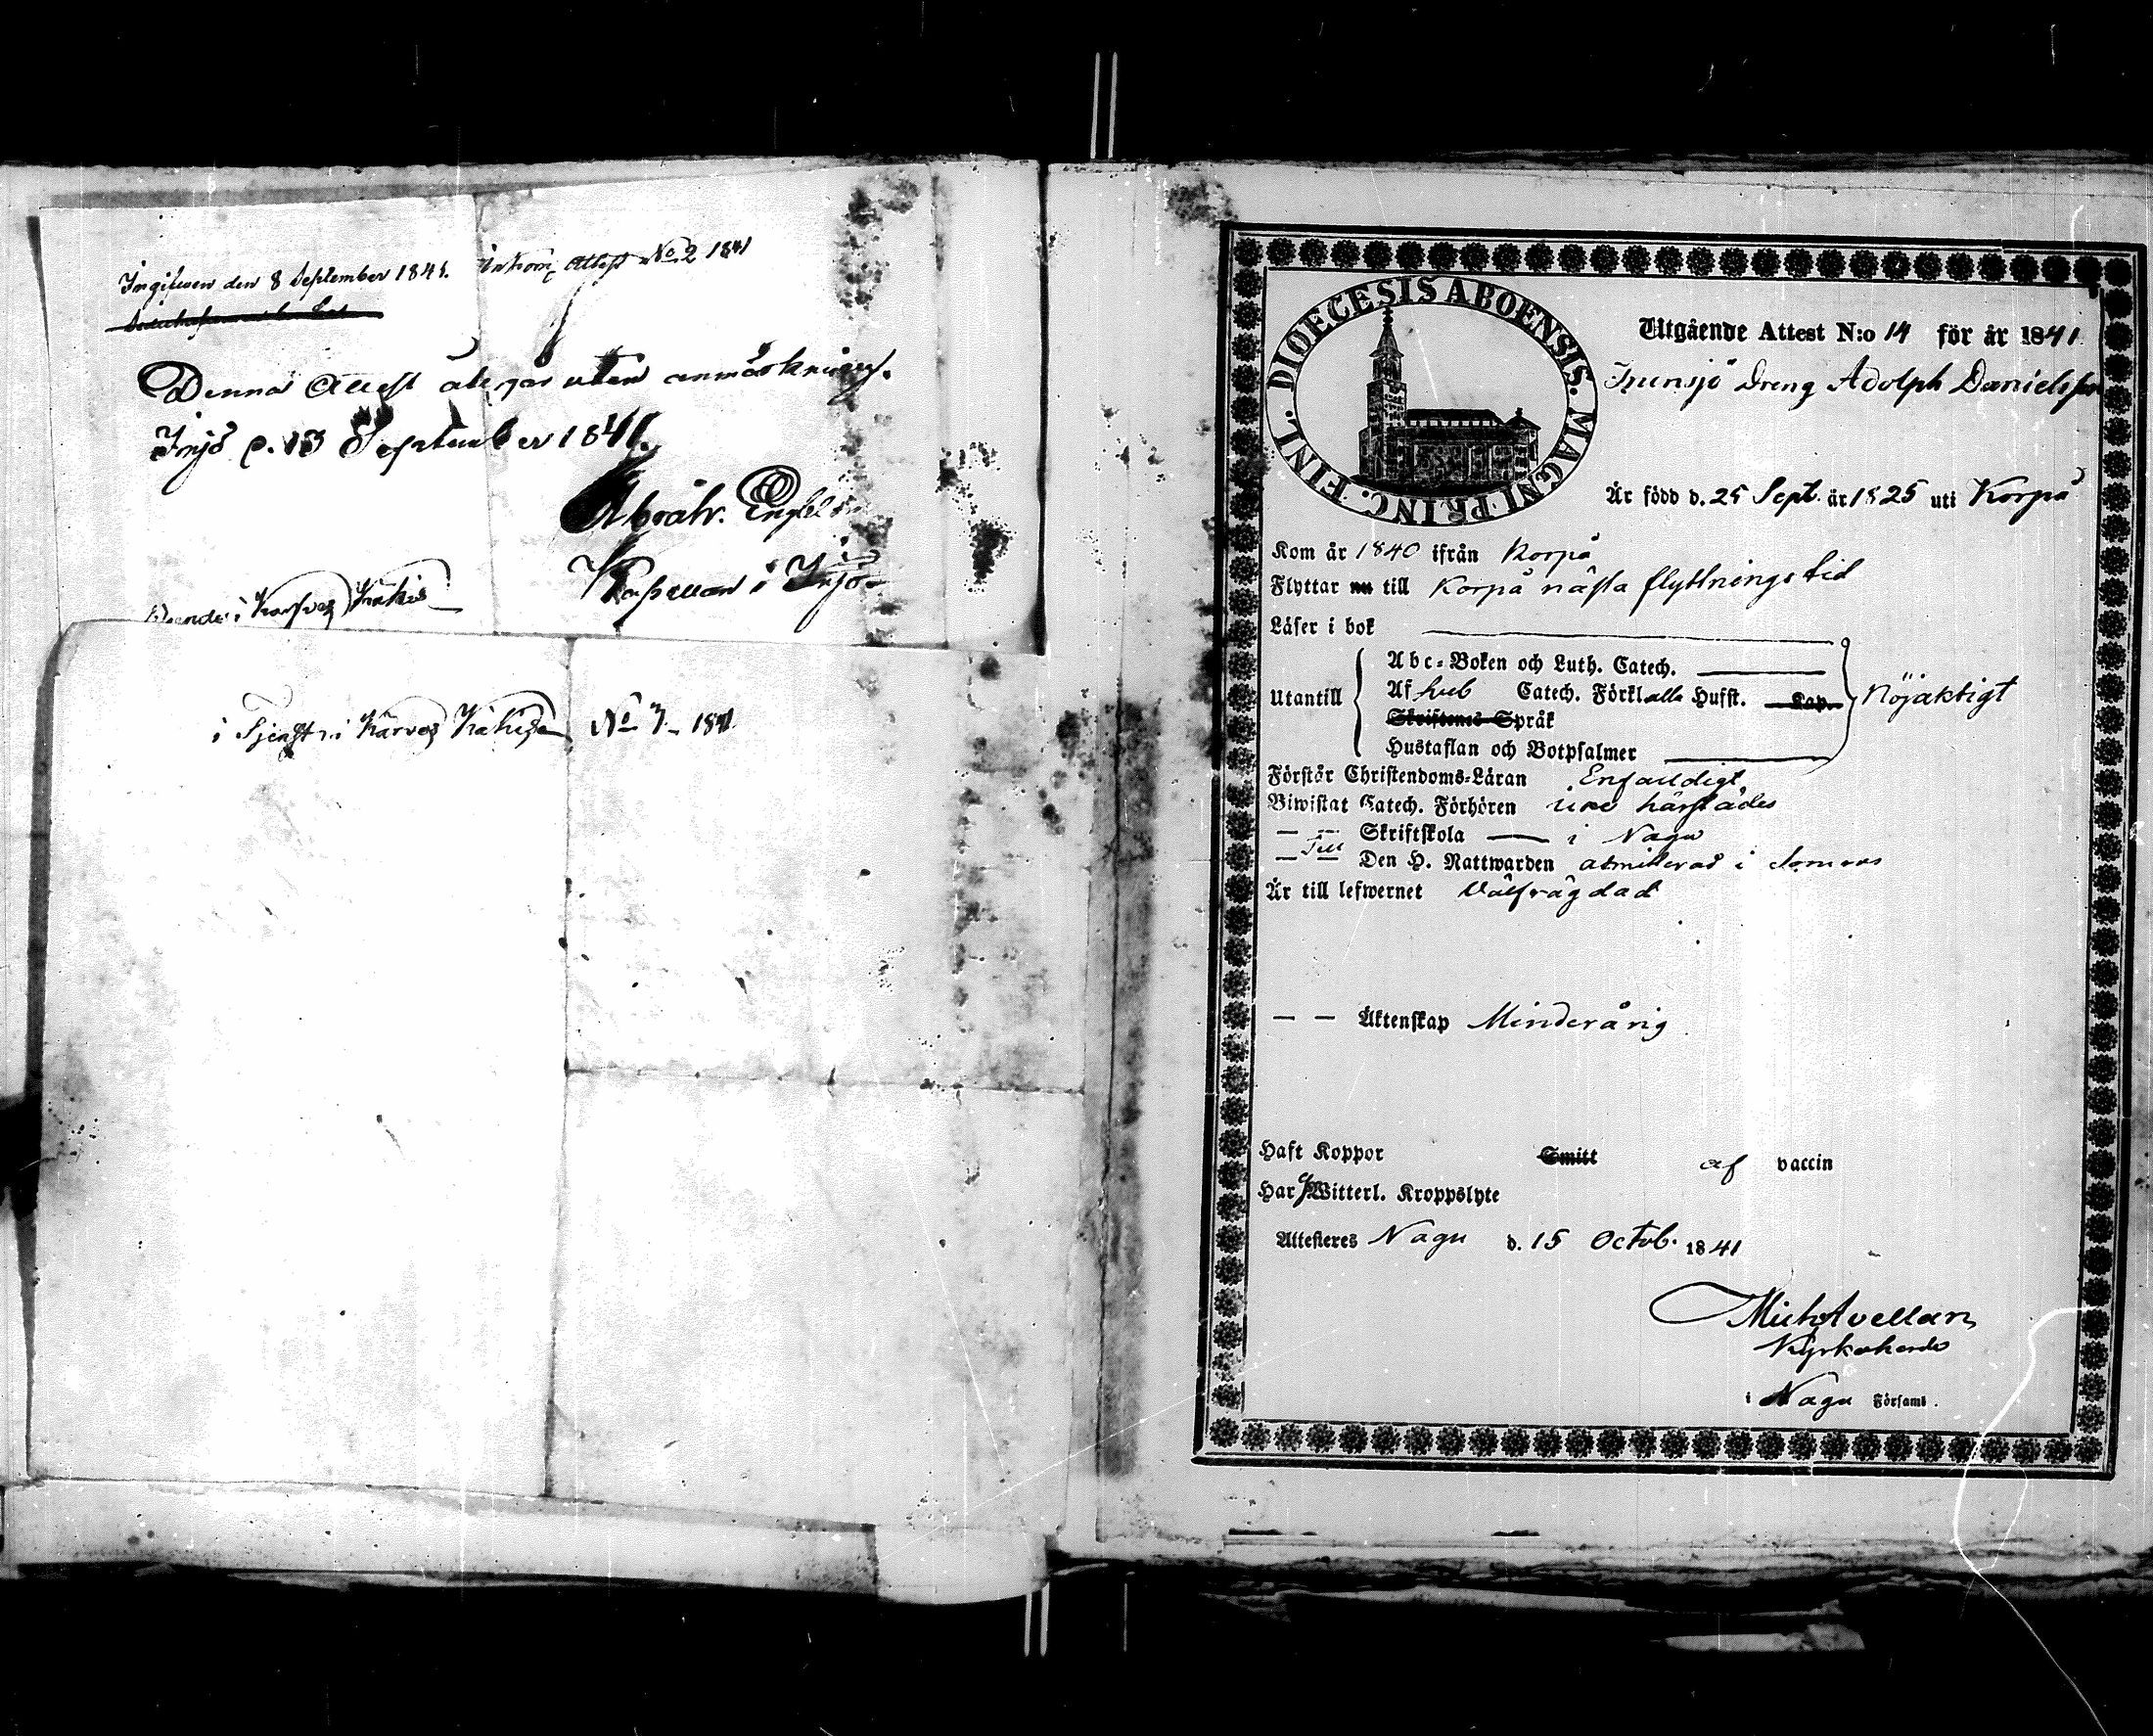 Ingifwen den 8 September 1841. Inkom. Attest No 2 1841
Denna Attest återgår utan anmärkning.
Iniö d. 13 September 1841.
Abrah. Englblom
Kapellan i Iniö
i Karfves Näkis
i Tjenst i Kärves Näkis No 7 1841
DIOECESIS ABOENSIS. MAGNI PRINC. FINL.
Utgående Attest N:o 14 för år 1841
Dreng Adolph Danielsson
Är född d. 25 Sept. år 1825 uti Korpå
Kom år 1840 ifrån Korpå
Flyttar nu till Korpå nästa flyttningstid
Läser i bok
Utantill
Abc-Boken och Luth. Catech.
Af Catech. Förkl alla Hufst. Kap.
Nöjaktigt
Skriftenes Språk
Hustaflan och Botpsalmer
Förstår Christendoms-Läran Enfaldigt
Biwistat Catech. Förhören härstädes
— — Skriftskola — i Nagu
— Till — Den H. Nattwarden admitterad i
Är till lefwernet Välfrägdad
— — Äktenskap Minderårig
Haft Koppor Smitt af vaccin
Har ej Witterl. Kroppslyte
Attesteres Nagu d. 15 Octob. 1841
Mich Avellan
Kyrkoherde
i Nagu Församl.